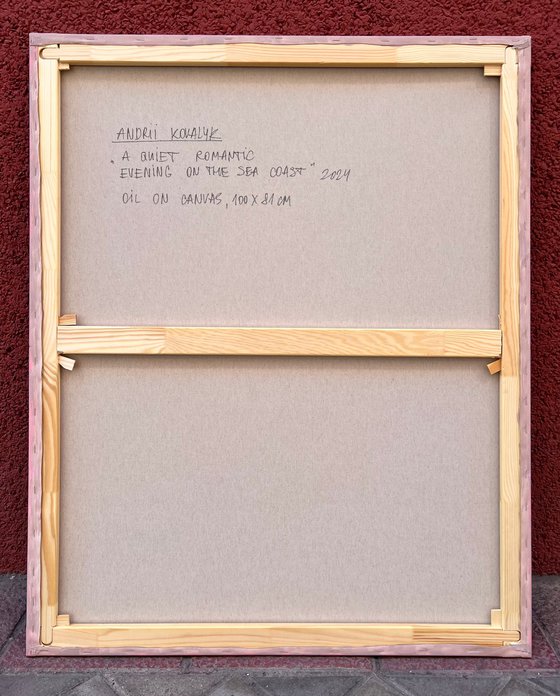 ANDRII KOVALYK
„A QUIET ROMANTIC
EVENING ON THE SEA COAST" 2024
OIL ON CANVAS, 100 X 81 CM